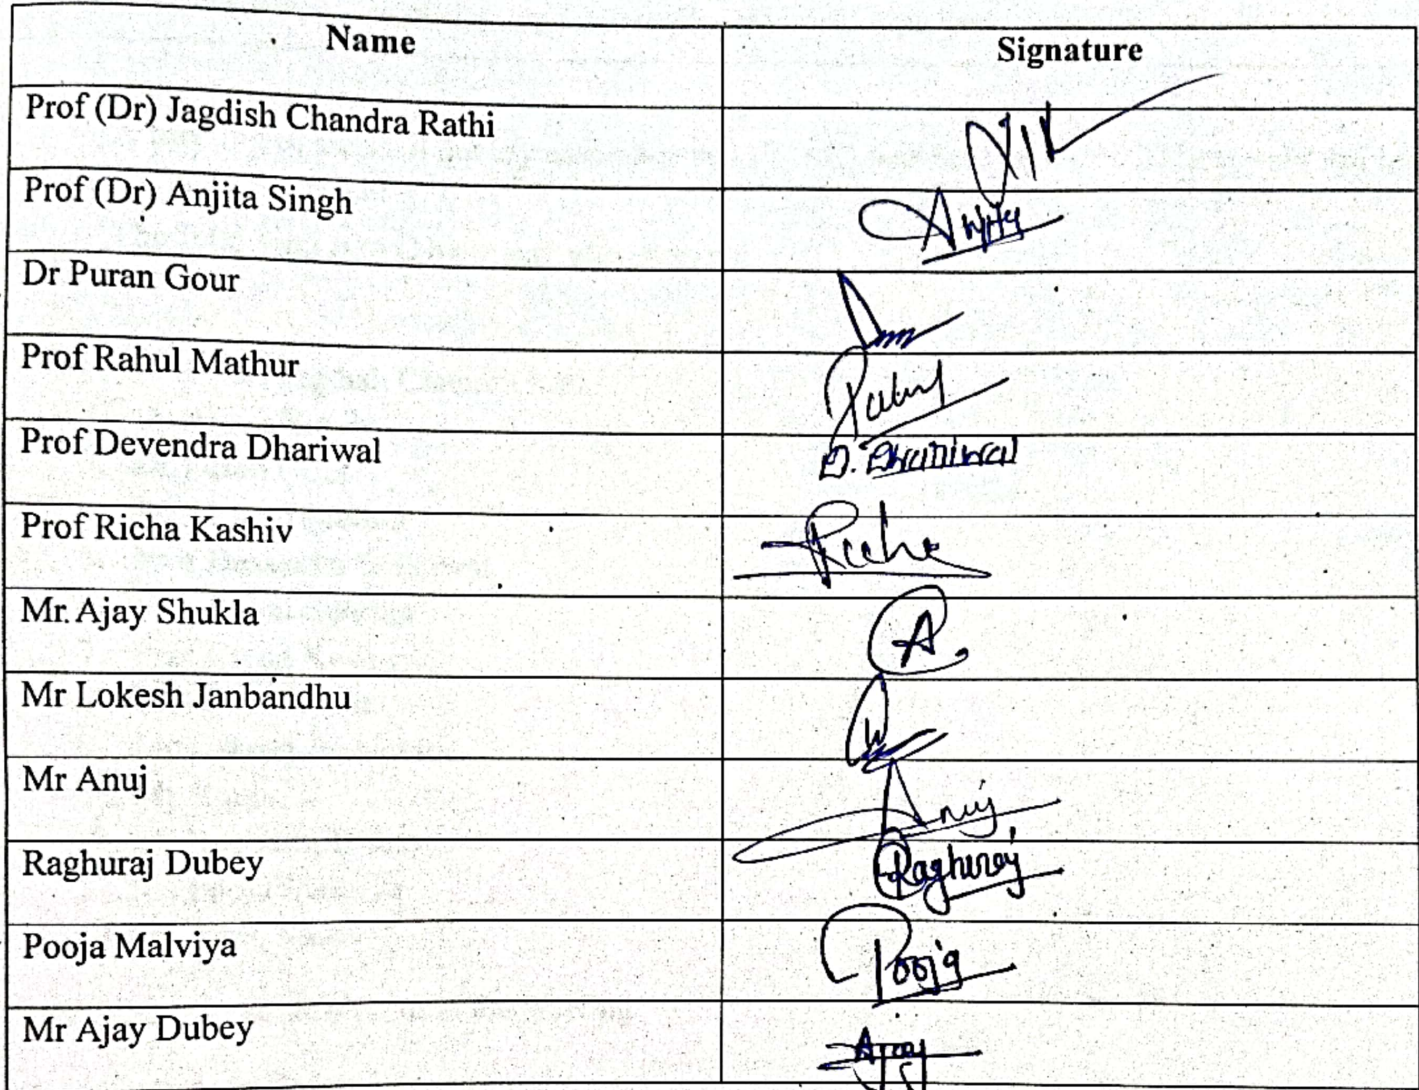 Name Signature
Prof (Dr) Jagdish Chandra Rathi
Prof (Dr) Anjita Singh Anjita
Dr Puran Gour
Prof Rahul Mathur
Prof Devendra Dhariwal D. Dhariwal
Prof Richa Kashiv Richa
Mr. Ajay Shukla A.
Mr Lokesh Janbandhu
Mr Anuj Anuj
Raghuraj Dubey Raghuraj
Pooja Malviya Pooja
Mr Ajay Dubey Ajay